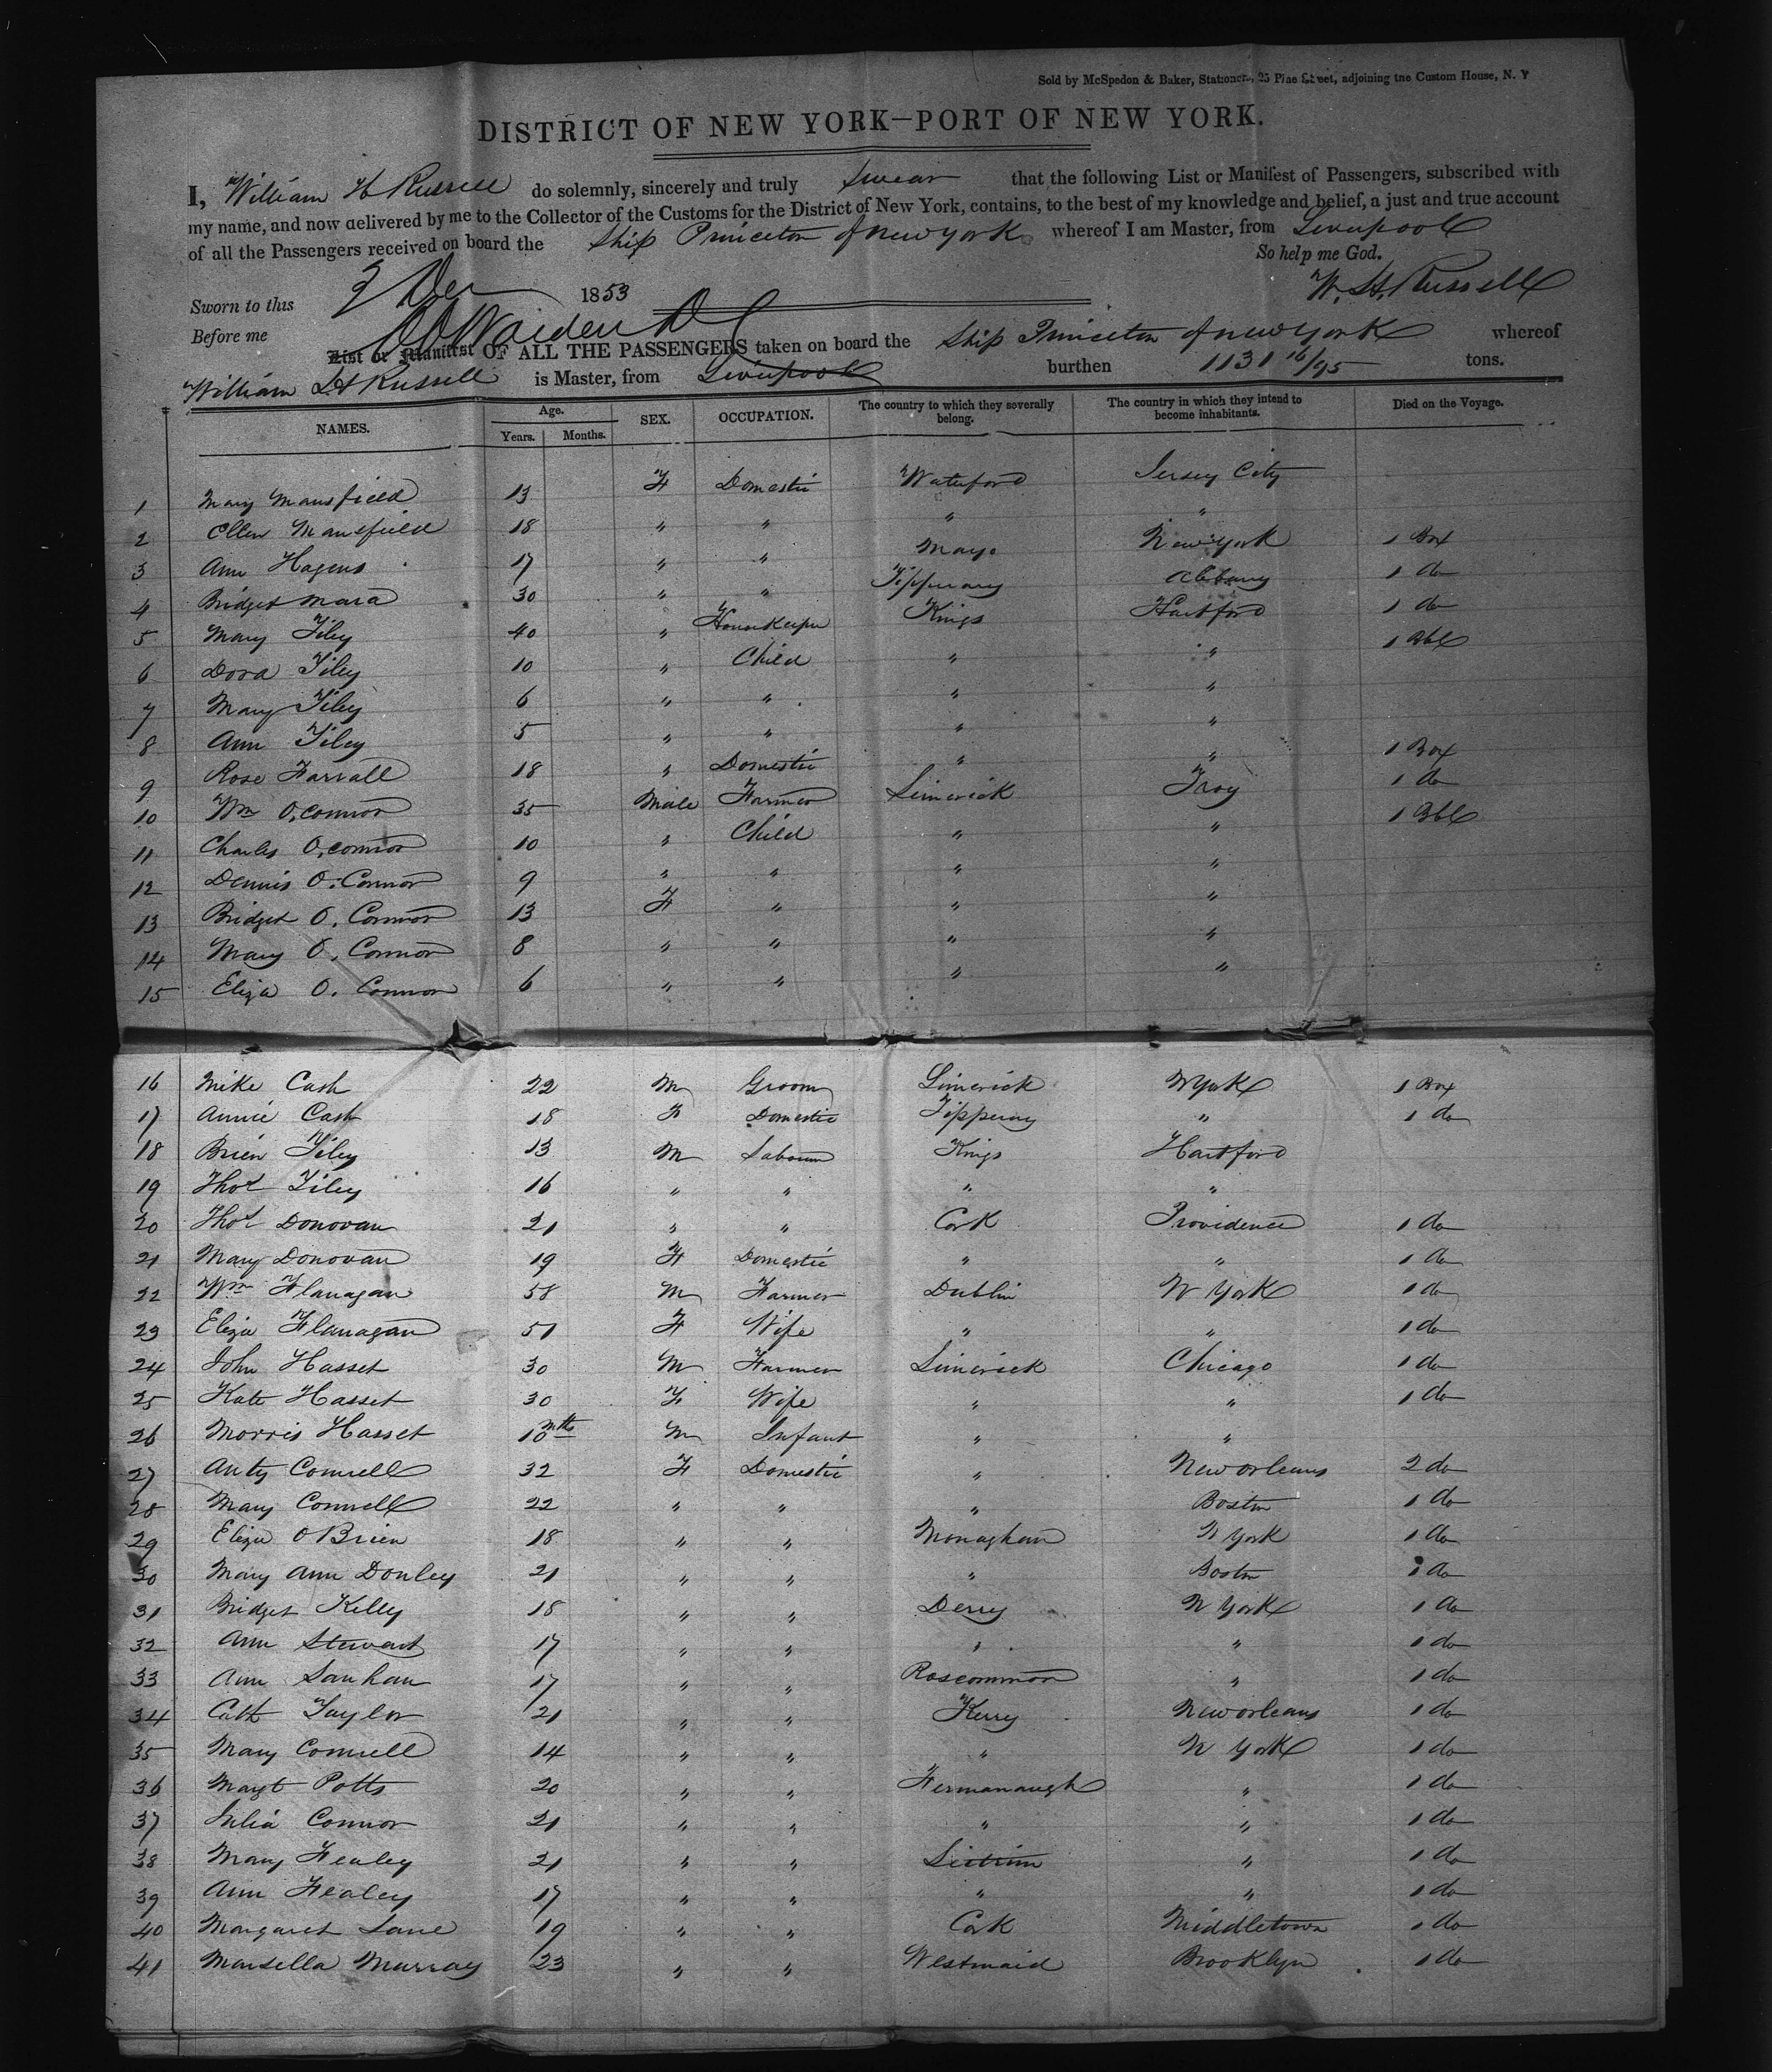 Sold by McSpedon & Baker, Stationers, 25 Pine Street, adjoining the Custom House, N. Y
DISTRICT OF NEW YORK—PORT OF NEW YORK.
I, William H Russell do solemnly, sincerely and truly swear that the following List or Manifest of Passengers, subscribed with
my name, and now delivered by me to the Collector of the Customs for the District of New York, contains, to the best of my knowledge and belief, a just and true account
of all the Passengers received on board the Ship Princeton of new york whereof I am Master, from Liverpool
So help me God.
W. H. Russell
Sworn to this Dec 1853
Before me
List or Manifest OF ALL THE PASSENGERS taken on board the Ship Princeton of new york whereof
William H Russell is Master, from Liverpool burthen 1131 16/95 tons.
NAMES. Age. Years. Months. SEX. OCCUPATION. The country to which they severally belong. The country in which they intend to become inhabitants. Died on the Voyage.
1 Mary Mansfield 13 F Domestic Waterford Jersey City
2 Ellen Mansfield 18 " " " "
3 Ann Hagens 17 " " Mayo New York 1 Box
4 Bridget Mara 30 " " Tipperary Albany 1 do
5 Mary Tiley 40 " HouseKeeper Kings Hartford 1 do
6 Dora Tiley 10 " Child " " 1 Bbl
7 Mary Tiley 6 " " " "
8 Ann Tiley 5 " " " "
9 Rose Farrall 18 " Domestic " " 1 Box
10 Wm O,connor 35 Male Farmer Limerick Troy 1 do
11 Charles O,connor 10 " Child " " 1 Bbl
12 Dennis O. Connor 9 " " " "
13 Bridget O. Connor 13 F " " "
14 Mary O. Connor 8 " " " "
15 Eliza O. Connor 6 " " " "
16 Mike Cash 22 M Groom Limerick N York 1 Box
17 Annie Cash 18 F Domestic Tipperary " 1 do
18 Brien Tiley 13 M Labourer Kings Hartford
19 Thos Tiley 16 " " " "
20 Thos Donovan 21 " " Cork Providence 1 do
21 Mary Donovan 19 F Domestic " " 1 do
22 Wm Flanagan 58 M Farmer Dublin N York 1 do
23 Eliza Flanagan 51 F Wife " " 1 do
24 John Hasset 30 M Farmer Limerick Chicago 1 do
25 Kate Hasset 30 F Wife " " 1 do
26 Morris Hasset 10 mths M Infant " "
27 Anty Connell 32 F Domestic " New orleans 2 do
28 Mary Connell 22 " " " Boston 1 do
29 Eliza O Brien 18 " " Monaghan N York 1 do
30 Mary Ann Donley 21 " " " Boston 1 do
31 Bridget Kelly 18 " " Derry N York 1 do
32 Ann Stewart 17 " " " " 1 do
33 Ann Lanhan 17 " " Roscommon " 1 do
34 Cath Taylor 21 " " Kerry New orleans 1 do
35 Mary Connell 14 " " " N York 1 do
36 Margt Potts 20 " " Fermanaugh " 1 do
37 Julia Connor 21 " " " " 1 do
38 Mary Fealey 21 " " Lietrim " 1 do
39 Ann Fealey 17 " " " " 1 do
40 Margaret Lane 19 " " Cork Middletown 1 do
41 Marsella Murray 23 " " Westmaid Brooklyn 1 do